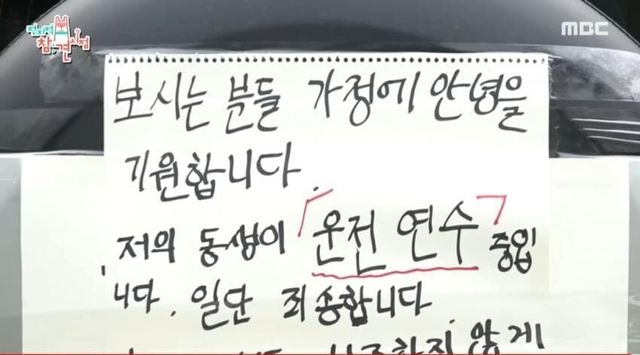 전지적 참견 시점
MBC
보시는 분들 가정에 안녕을
기원합니다.
저의 동생이 「운전 연수」 중입
니다. 일단 죄송합니다.
않게